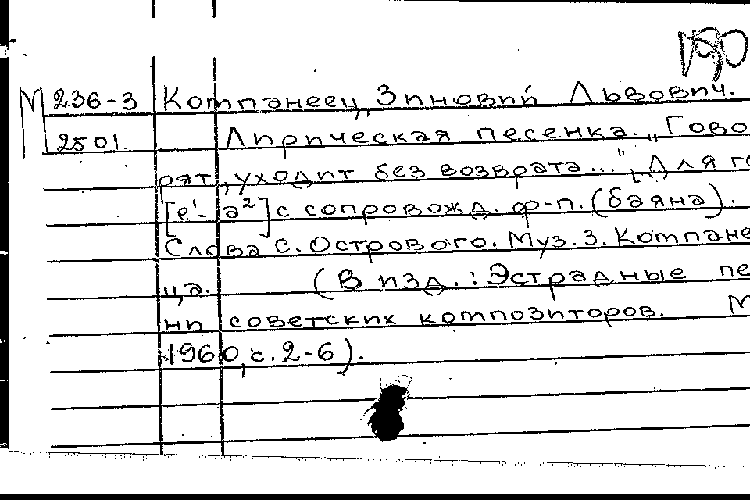 М 236-3 Компанеец, Зиновий Львович.
2501 Лирическая песенка. „Гово
рят, уходит без возврата...". Для го
[e'- a²] с сопровожд. ф-п. (баяна).
Слова С. Острового. Муз. З. Компане
ца. (В изд.: Эстрадные пе
ни советских композиторов. М
1960, с. 2-6).